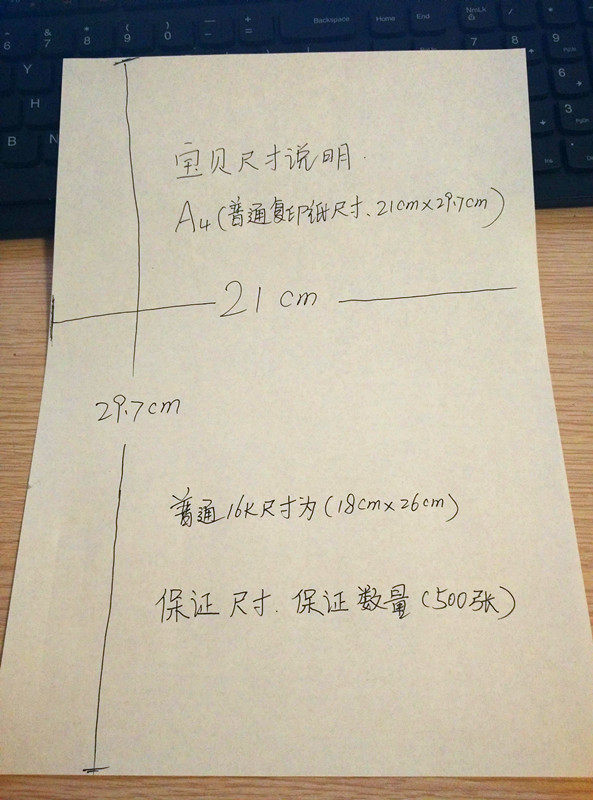 Backspace
Home
End
NmLk
PgUp
PgDn
Ins
宝贝尺寸说明.
A4(普通复印纸尺寸、21cm×29.7cm)
21 cm
29.7cm
普通16K尺寸为(18cm×26cm)
保证尺寸.保证数量(500张)